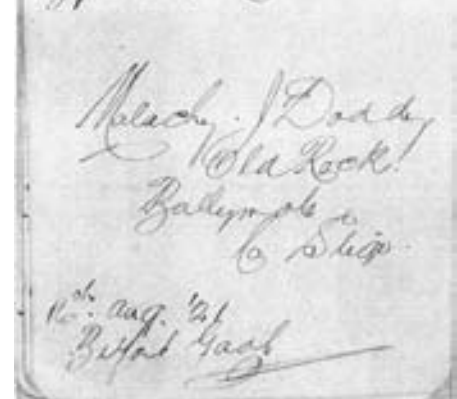 Malachy. J Doddy
Old Rock.
Ballymote
Co Sligo.
Aug. '21
Belfast Gaol